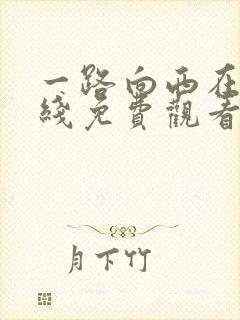 一路向西在
綫免費觀看
月下竹